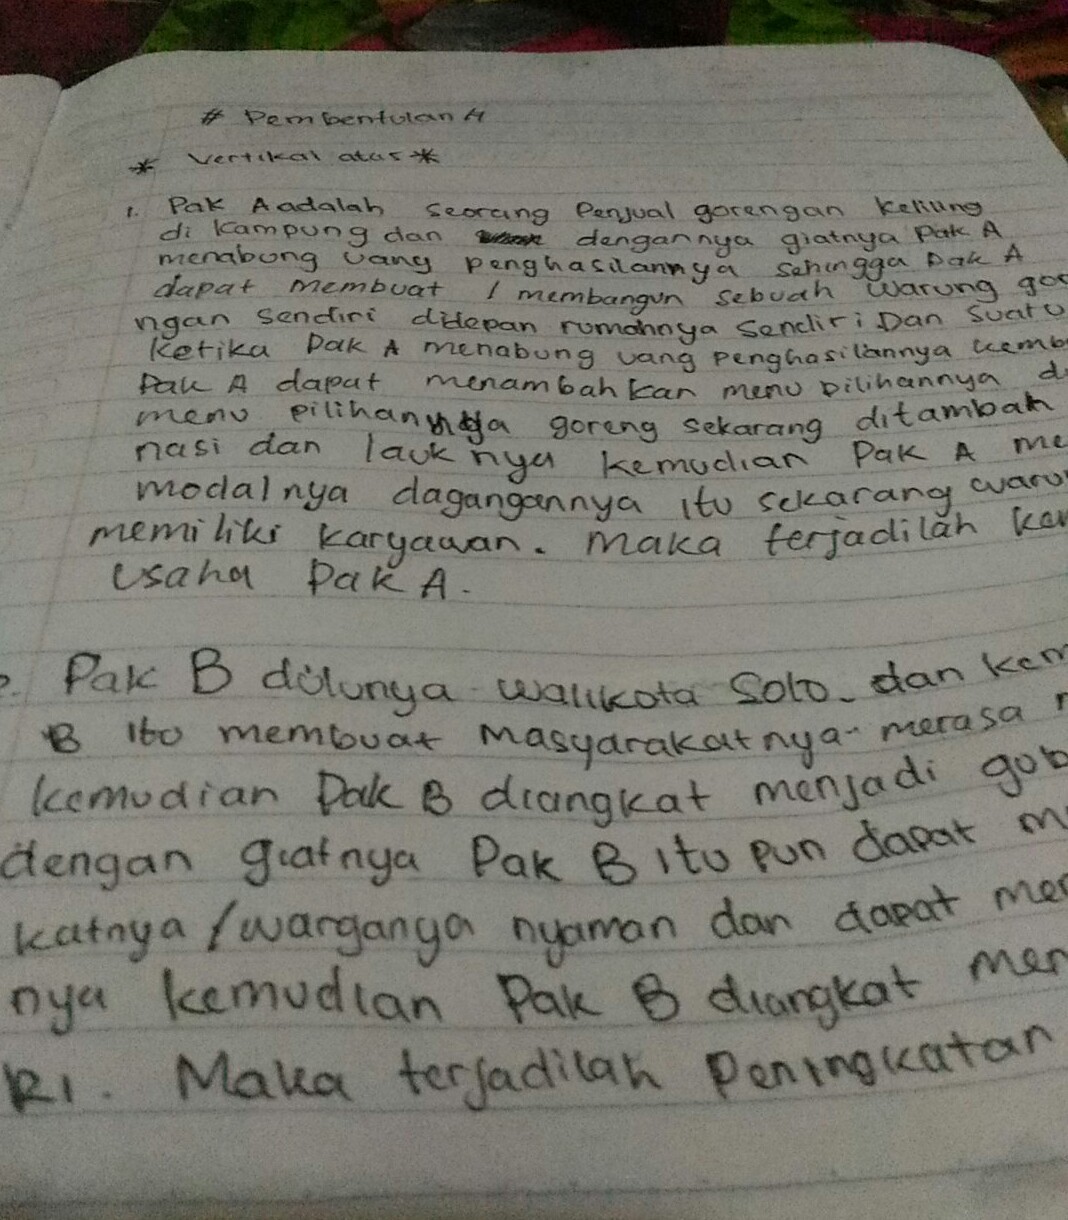 # Pembentulan #
* Vertikal atas *
1. Pak A adalah seorang Penjual gorengan keliling
di kampung dan dengannya giatnya Pak A
menabung uang penghasilannya sehingga Pak A
dapat membuat / membangun sebuah warung gor
ngan sendiri didepan rumahnya sendiri Dan suatu
ketika Pak A menabung uang penghasilannya kemb
Pak A dapat menambahkan menu pilihannya d
menu pilihannya goreng sekarang ditambah
nasi dan lauknya kemudian Pak A me
modalnya dagangannya itu sekarang waru
memiliki karyawan. Maka terjadilah ke
usaha Pak A.
2. Pak B dulunya walikota Solo dan kem
B itu membuat Masyarakatnya merasa
kemudian Pak B diangkat menjadi gub
dengan giatnya Pak B itu pun dapat m
katnya / warganya nyaman dan dapat men
nya kemudian Pak B diangkat men
RI. Maka terjadilah Peningkatan